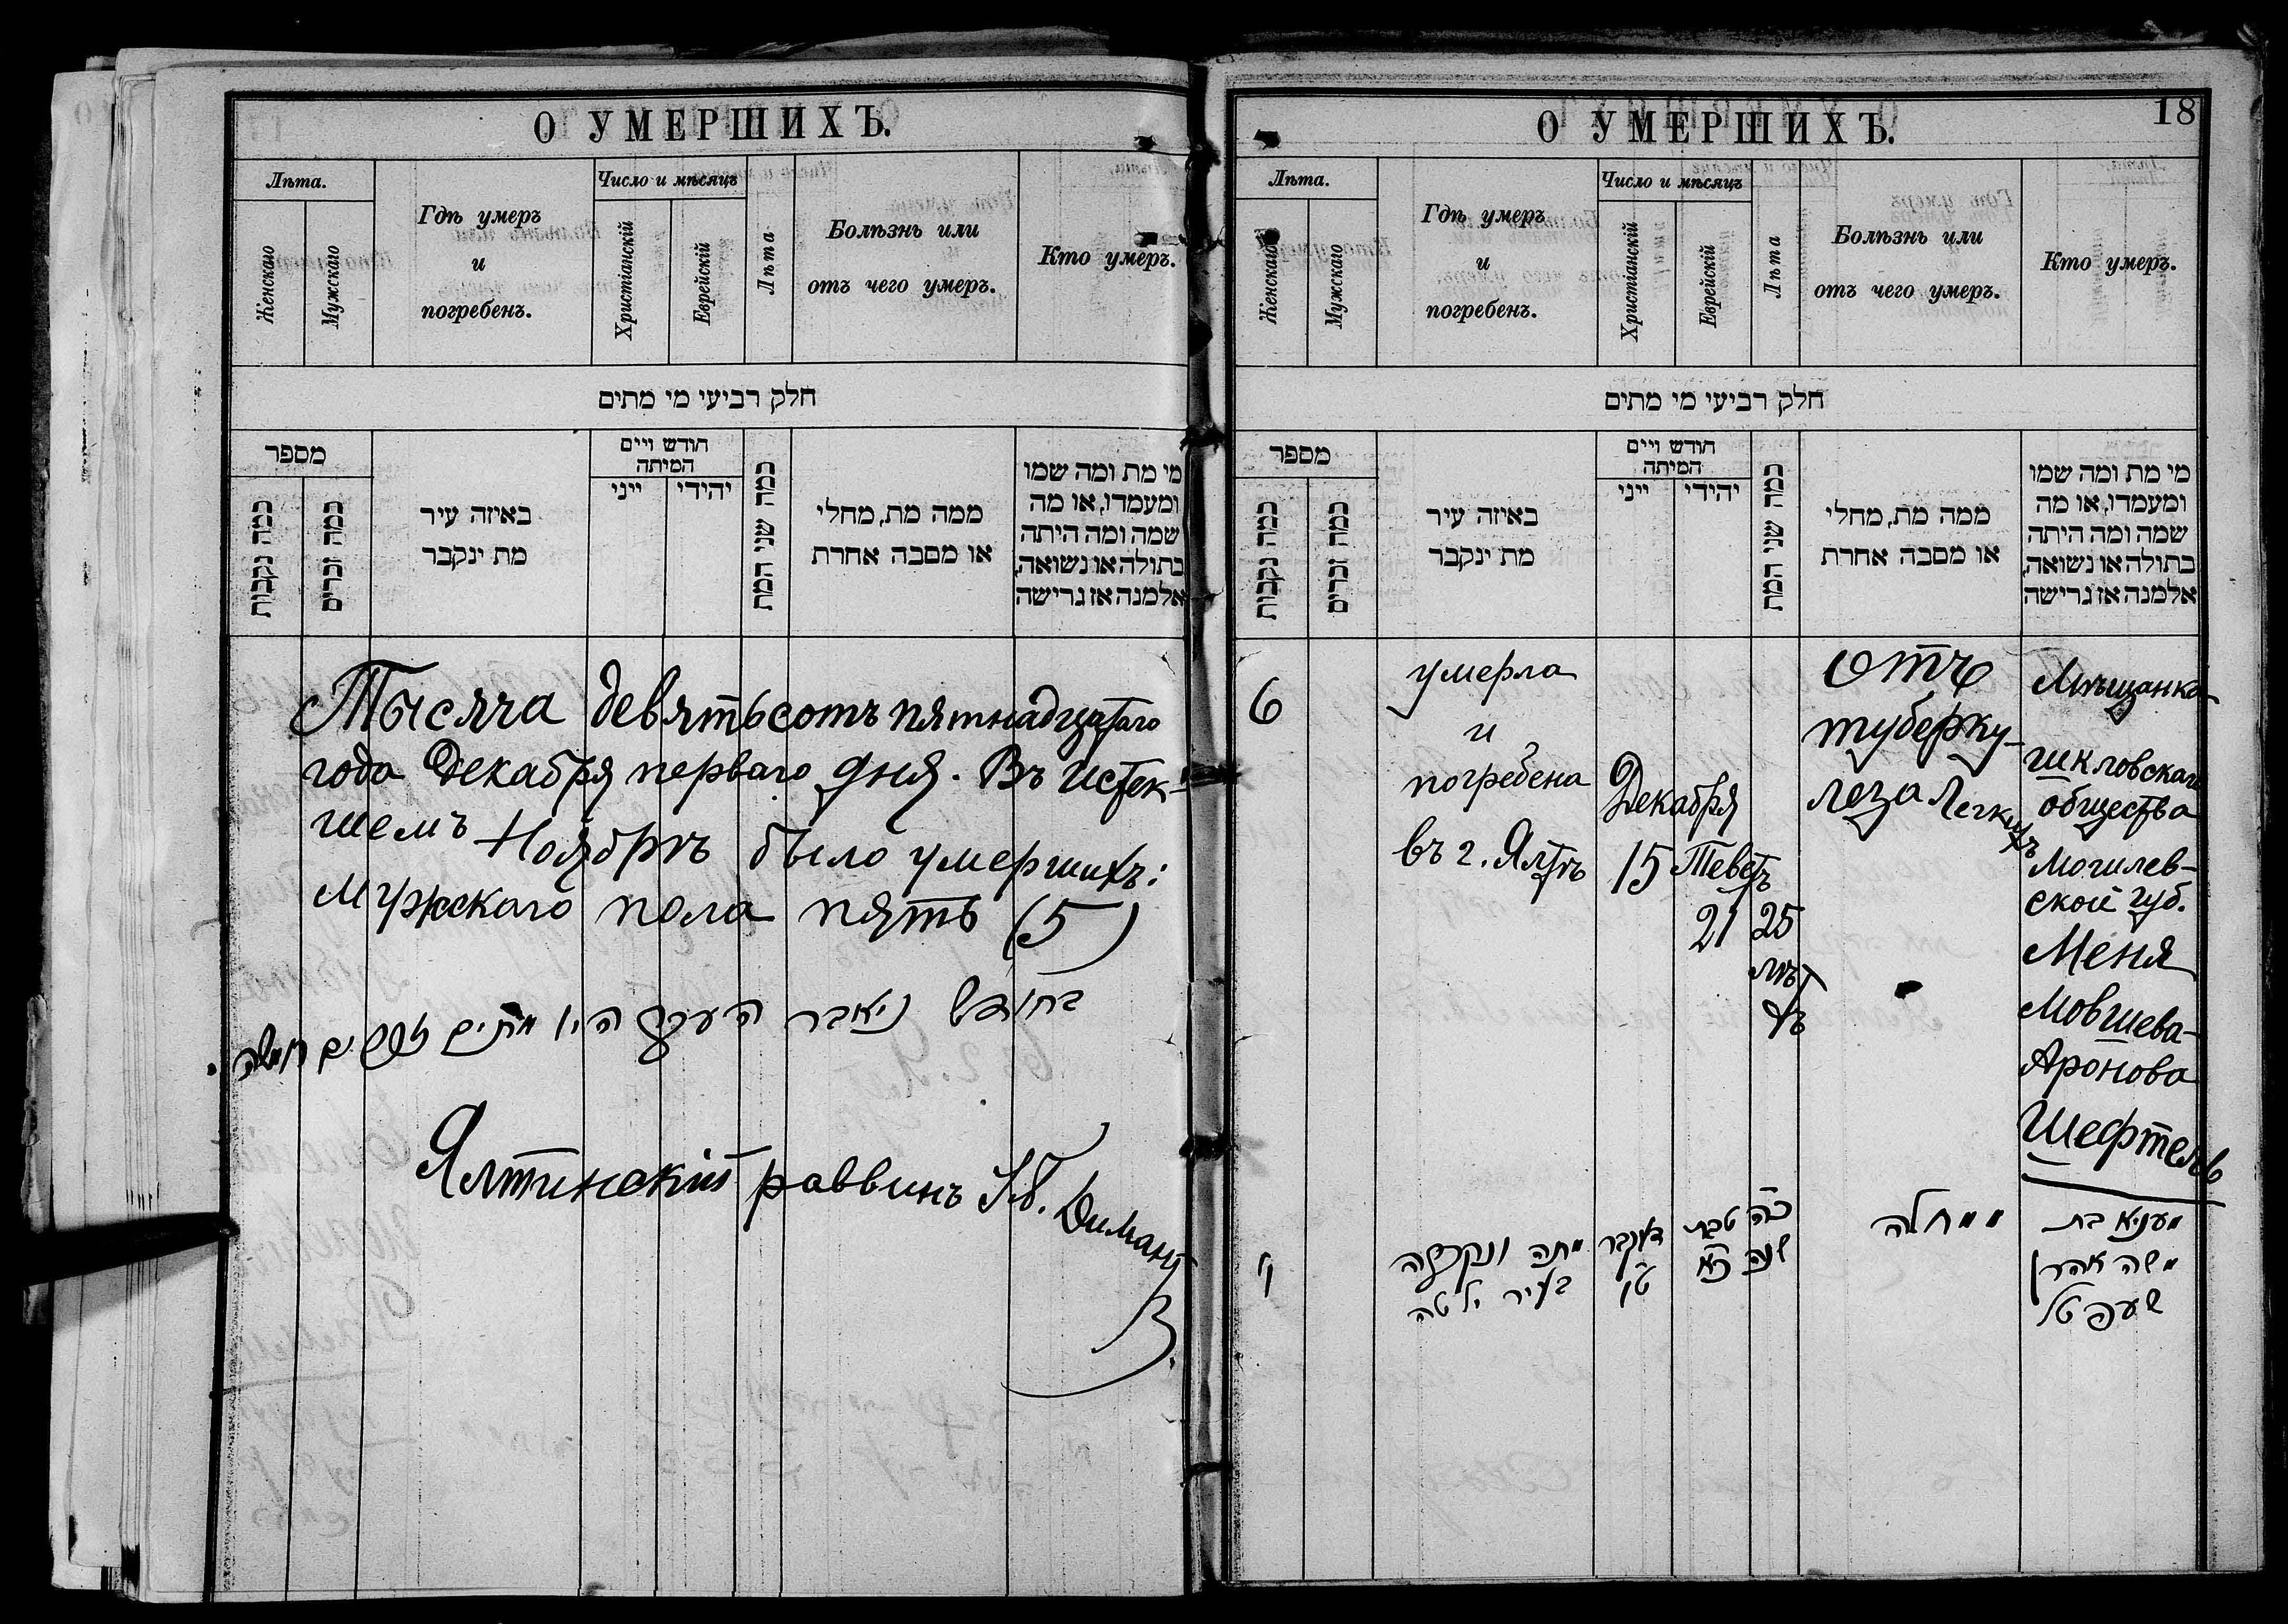 О УМЕРШИХЪ.
Лѣта.
Женскаго
Мужскаго
Гдѣ умеръ
и
погребенъ.
Число и мѣсяцъ
Христіанскій
Еврейскій
Лѣта
Болѣзнь или
отъ чего умеръ.
Кто умеръ.
חלק רביעי מי מתים
מספר
כמה נקבות
כמה זכרים
באיזה עיר
מת ינקבר
חודש ויים
המיתה
ייני
יהידי
כמה שני המת
ממה מת, מחלי
או מסבה אחרת
מי מת ומה שמו
ומעמדו, או מה
שמה ומה היתה
בתולה או נשואה,
אלמנה אז גרישה
Тысяча девятьсотъ пятнадцатаго
года Декабря перваго дня. Въ истек-
шемъ Ноябрѣ было умершихъ:
Мужскаго пола пять (5)
בחודש ניאבר העבר היו מתים זכרים חמשה
Ялтинскій раввинъ Я. Диманъ
О УМЕРШИХЪ.
18
Лѣта.
Женскаго
Мужскаго
Гдѣ умеръ
и
погребенъ.
Число и мѣсяцъ
Христіанскій
Еврейскій
Лѣта
Болѣзнь или
отъ чего умеръ.
Кто умеръ.
חלק רביעי מי מתים
מספר
כמה נקבות
כמה זכרים
באיזה עיר
מת ינקבר
חודש ויים
המיתה
ייני
יהידי
כמה שני המת
ממה מת, מחלי
או מסבה אחרת
מי מת ומה שמו
ומעמדו, או מה
שמה ומה היתה
בתולה או נשואה,
אלמנה אז גרישה
6
умерла
и
погребена
въ г. Ялтѣ
Декабря
15
Теветъ
21
25
лѣт
ъ
отъ
туберку-
леза легкихъ
Мѣщанка
шкловскаго
общества
Могилев-
ской губ.
Меня
Мовшева-
Аронова
Шефтель
ו
מתה ונקברה
בעיר ילטה
דעקבר
טו
טבת
כא
כה
שנה
ממחלה
מעניא בת
משה אהרן
שעפטל